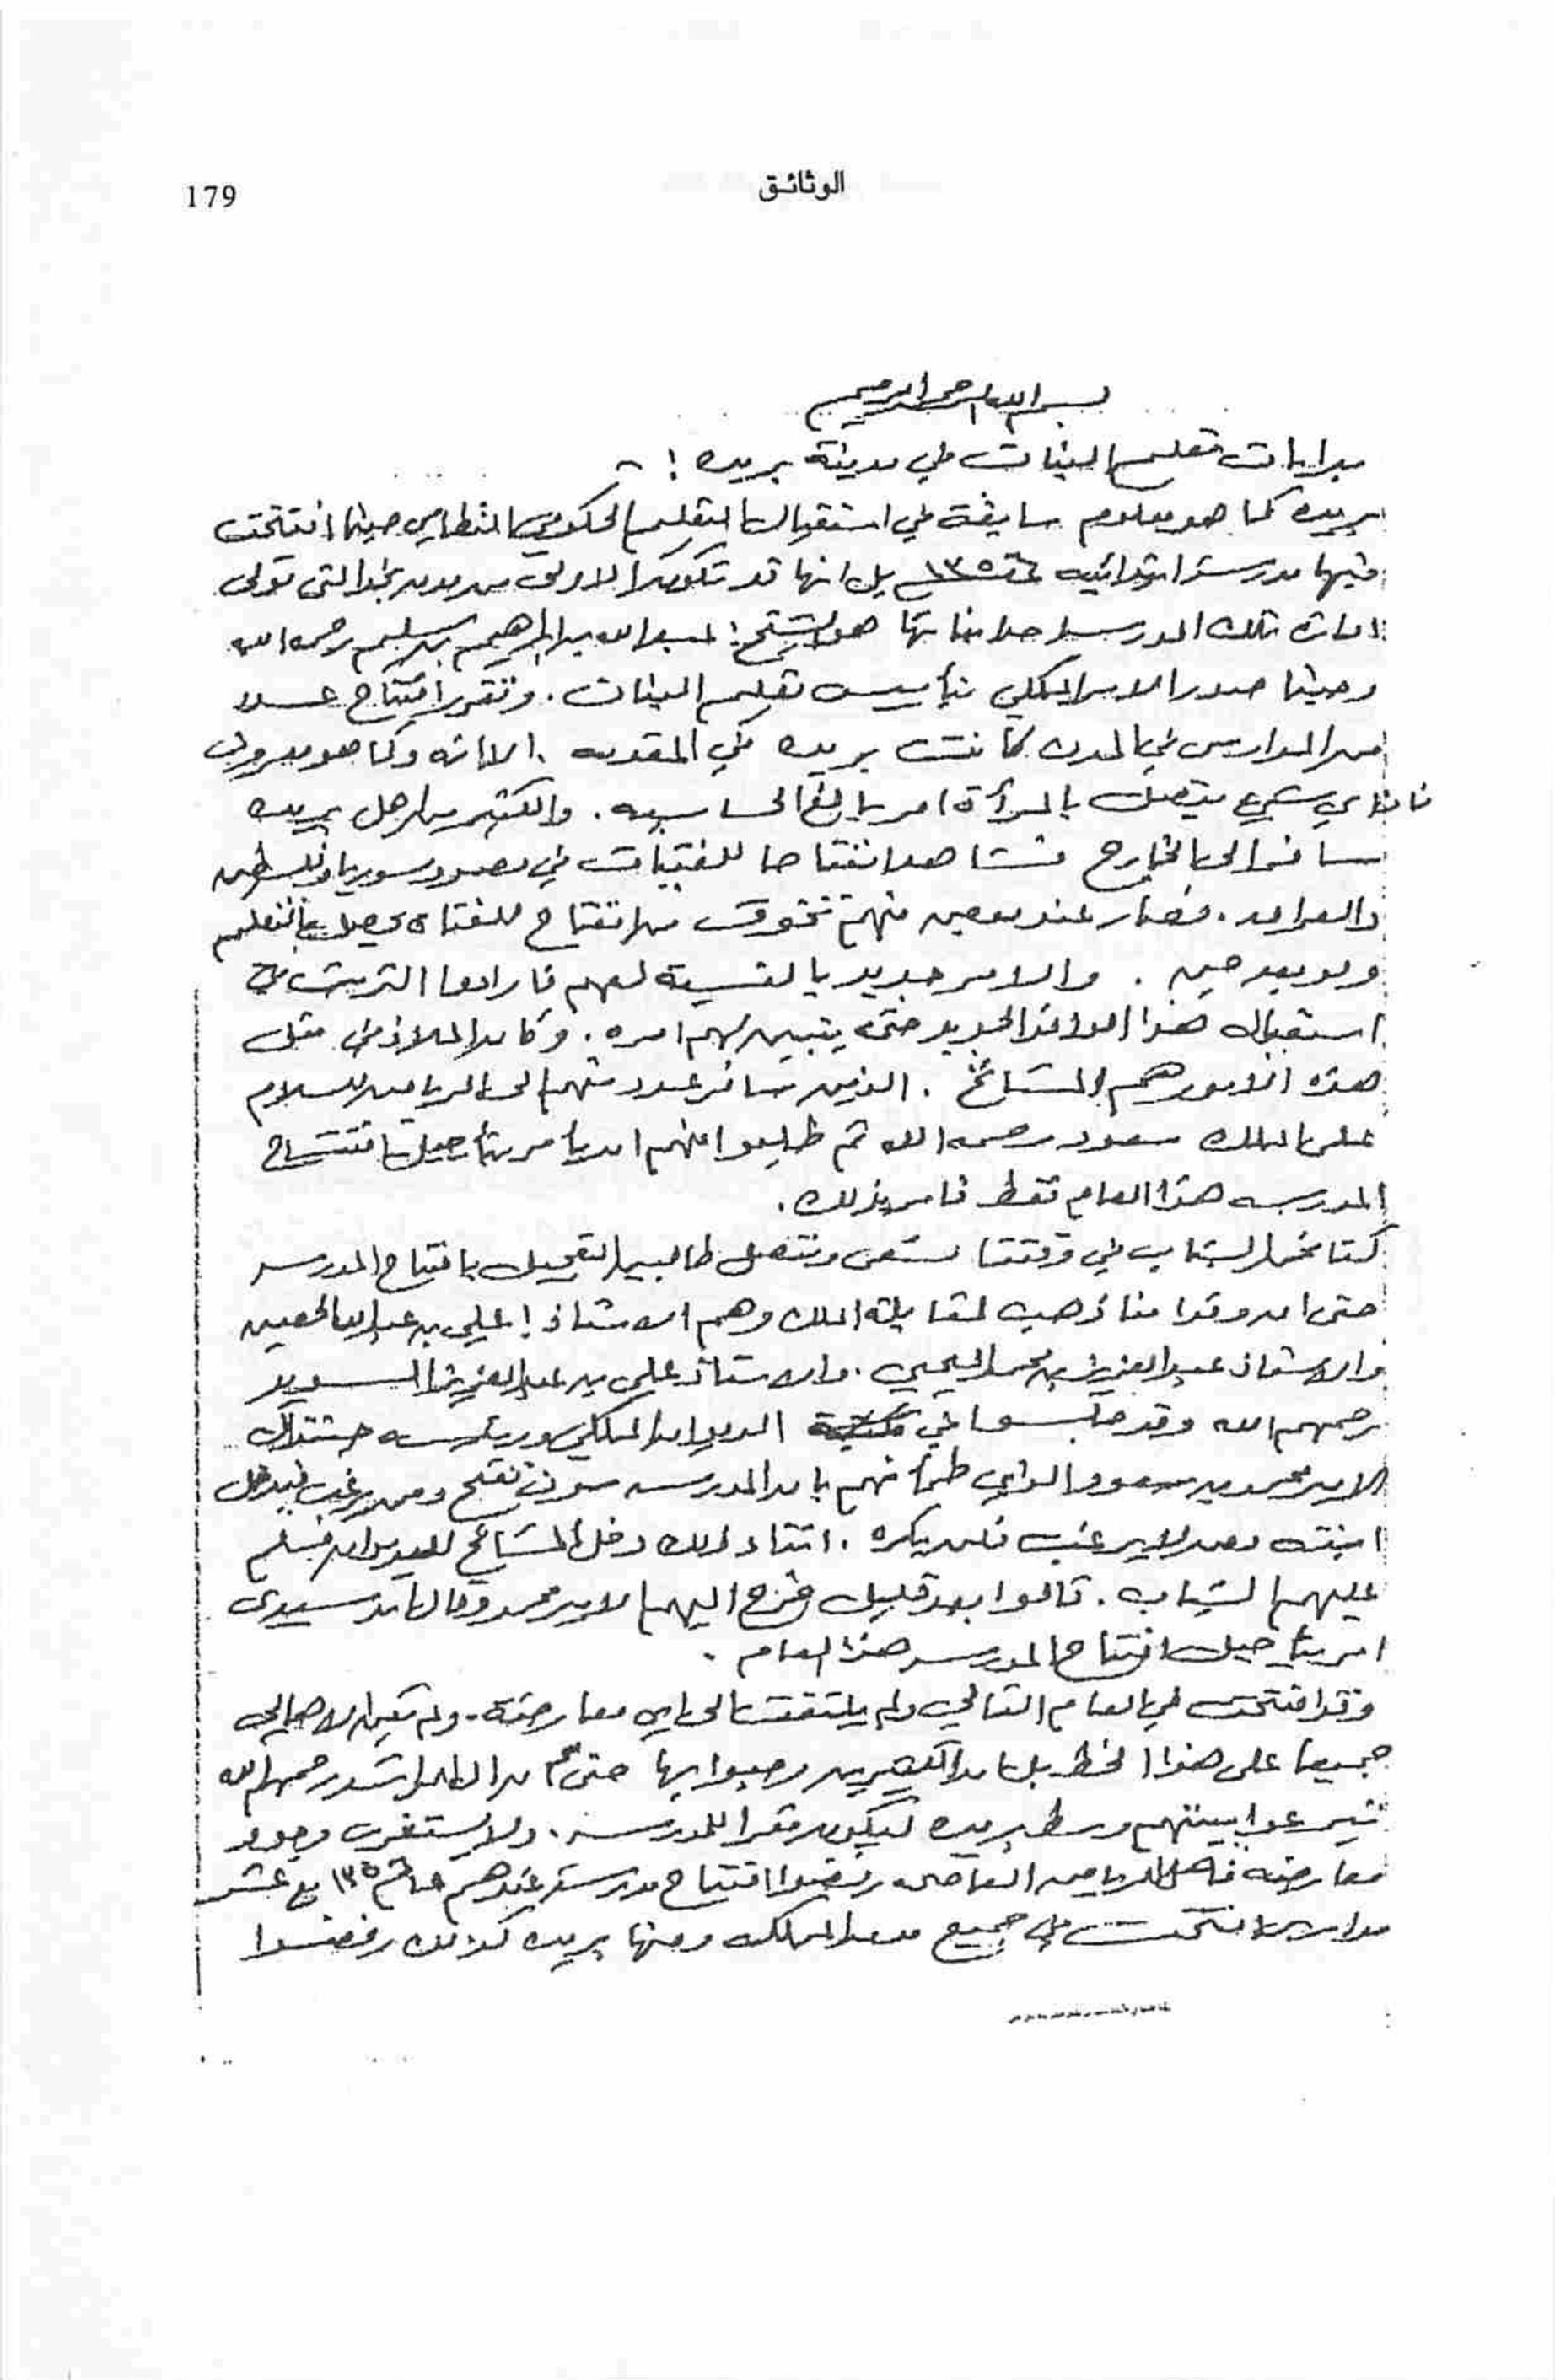 الوثائق
179
بسم الله الرحمن الرحيم
بدايات تعليم البنات في مدينة بريده :-
بريده كما هو معلوم سابقة في استقبال التعليم الحكومي النظامي حينما افتتحت
فيها مدرسة ابتدائيه ١٣٥٦ بل انها قد تكون الاولى من مدن نجد التي تولى
ادارة تلك المدرسة حال بدايتها هو الشيخ: عبدالله بن ابراهيم بن سليم رحمه الله
وحينما صدر الامر الملكي بتأسيس تعليم البنات. وتقرر افتتاح عدد
من المدارس في المدن كانت بريده في المقدمه . الا انه وكما هو معروف
فان اي شيء يتصل بالمرأة امر بالغ الحساسيه. والكثير من اهل بريده
سافر الى الخارج فشاهد انفتاحا للفتيات في مصر وسوريا وفلسطين
والعراق. فصار عند بعض منهم تخوف من انفتاح للفتاة يحصل بالتعليم
ولو بعد حين . والامر جديد بالنسبة لهم فارادوا التريث في
استقبال هذا الوافد الجديد حتى يتبين لهم امره. وكان الملاذ في مثل
هذه الامور هم المشائخ . الذين سافر عدد منهم الى الرياض للسلام
على الملك سعود رحمه الله ثم طلبوا منهم ان يأمر بتأجيل افتتاح
المدرسه هذا العام فقط فأمر بذلك.
كنا نحن الشباب في وقتنا نسعى ونتصل طالبين التعجيل بافتتاح المدرسه
حتى ان وفدا منا ذهب لمقابلة الملك وهم الاستاذ: علي بن عبدالله الحصين
والاستاذ عبدالعزيز بن محمد اليحيى. والاستاذ علي بن عبدالعزيز
رحمهم الله وقد جلسوا في الديوان الملكي
الامير محمد بن سعود الذي طمأنهم بان المدرسه سوف تفتح ومن يرغب فيدخل
ابنته ومن لا يرغب فلن يكره . اثناء ذلك دخل المشائخ للديوان فسلم
عليهم الشباب. قالوا بعد قليل خرج اليهم الامير محمد وقال ان سيدي
امر بتأجيل افتتاح المدرسه هذا العام .
وقد افتتحت في العام التالي ولم يلتفت الى اي معارضة. ولم يكن الاهالي
جميعا على هذا الخط بل ان الكثيرين رحبوا بها حتى ان آل الراشد رحمهم الله
تبرعوا ببيتهم وسط بريده ليكون مقرا للمدرسه. ولا يستغرب وجود
معارضه فأهل الرياض العاصمه رفضوا افتتاح مدرسة عندهم عام ١٣٥٦ مع عشر
مدارس افتتحت في جميع مدن المملكه ومنها بريده كذلك رفضوا